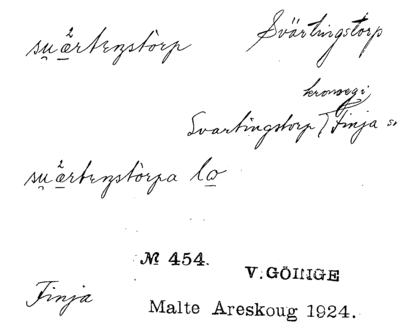 su̯ærtenstòrp Svärtingstorp
kronoegi
Svartingstorp Finja sn
su̯ærtenstòrpa lo
№ 454.
V. GÖINGE
Finja
Malte Areskoug 1924.